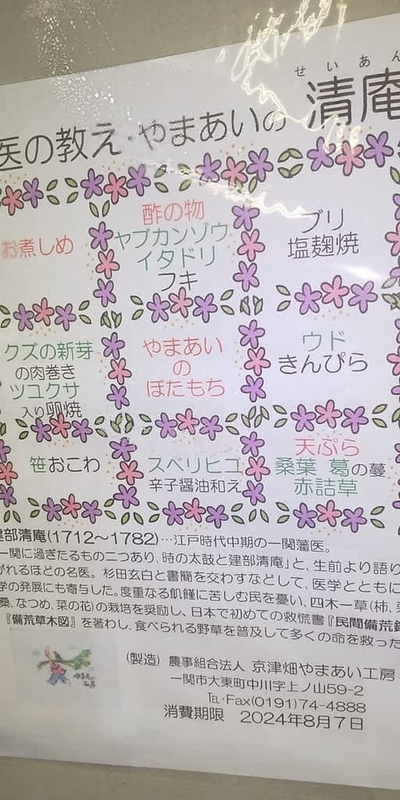 せいあん
医の教え・やまあいの 清庵
お煮しめ
酢の物
ヤブカンゾウ
イタドリ
フキ
ブリ
塩麹焼
クズの新芽
の肉巻き
ツユクサ
入り卵焼
やまあい
の
ぼたもち
ウド
きんぴら
笹おこわ
スベリヒユ
辛子醤油和え
天ぷら
桑葉 葛の蔓
赤詰草
建部清庵(1712〜1782)…江戸時代中期の一関藩医。
一関に過ぎたるもの二つあり、時の太鼓と建部清庵」と、生前より語り
がれるほどの名医。杉田玄白と書簡を交わすなどして、医学とともに
学の発展にも寄与した。度重なる飢饉に苦しむ民を憂い、四木一草(柿、
桑、なつめ、菜の花)の栽培を奨励し、日本で初めての救慌書『民間備荒録
『備荒草木図』を著わし、食べられる野草を普及して多くの命を救った
(製造) 農事組合法人 京津畑やまあい工房
一関市大東町中川字上ノ山59-2
℡・Fax(0191)74-4888
消費期限 2024年8月7日